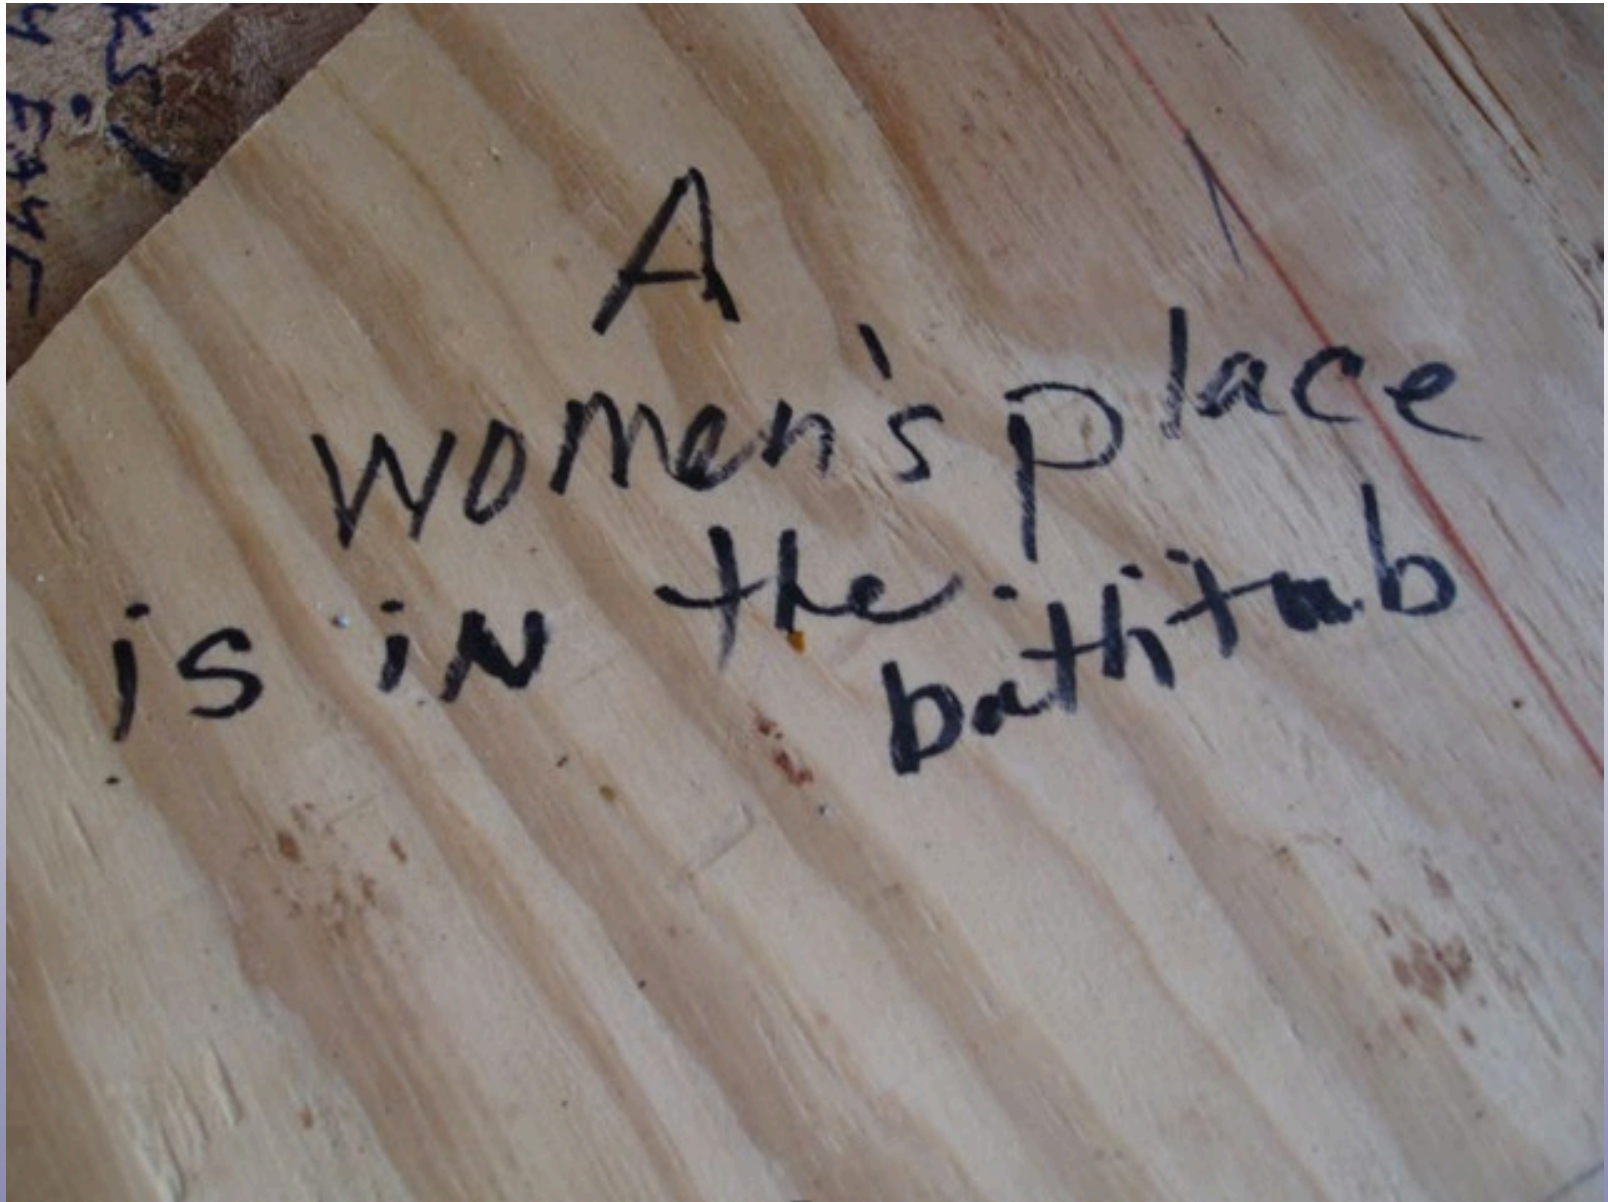 A
women's place
is in the
bathtub